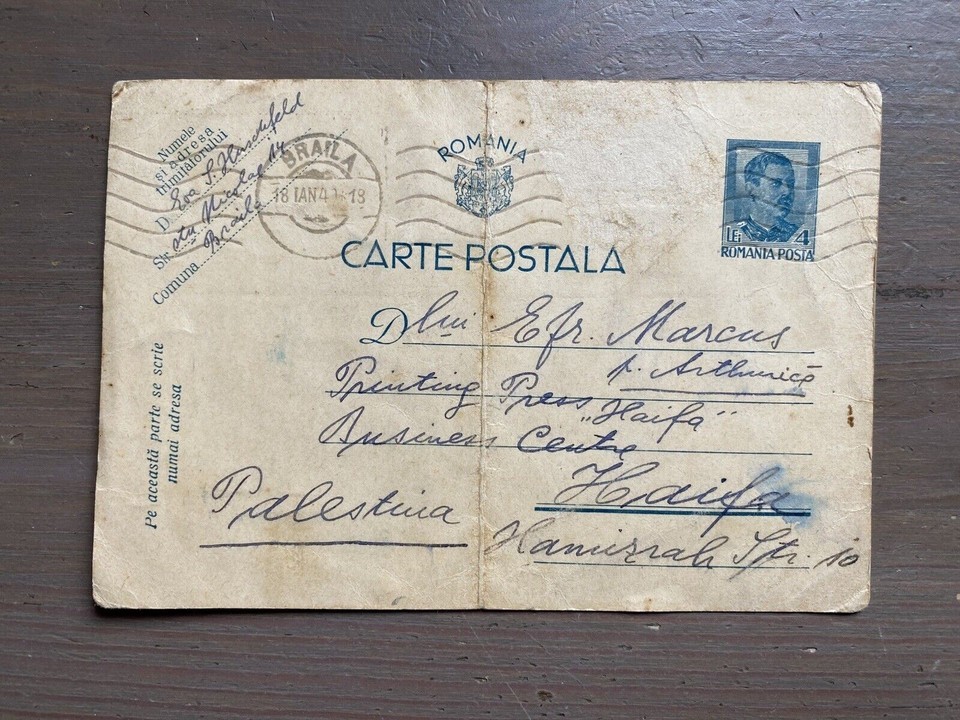 Numele
și adresa
trimițătorului
D Eva S. Herschfeld
Str. Nicolae 14
Comuna Braila
BRAILA
18 IAN 4 18
ROMANIA
CARTE POSTALA
LEI 4
ROMANIA POSTA
Dlui Efr. Marcus
p. Arthurică
Printing Press „Haifa"
Business Centre
Haifa
Palestina
Hamizrah Str. 10
Pe această parte se scrie
numai adresa